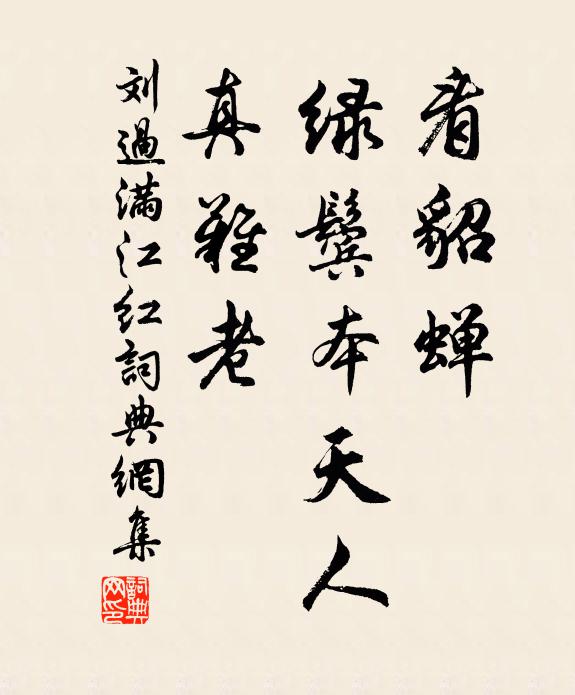 看貂蝉
绿鬓本天人
真难老
刘过满江红詞典網集
詞典网印